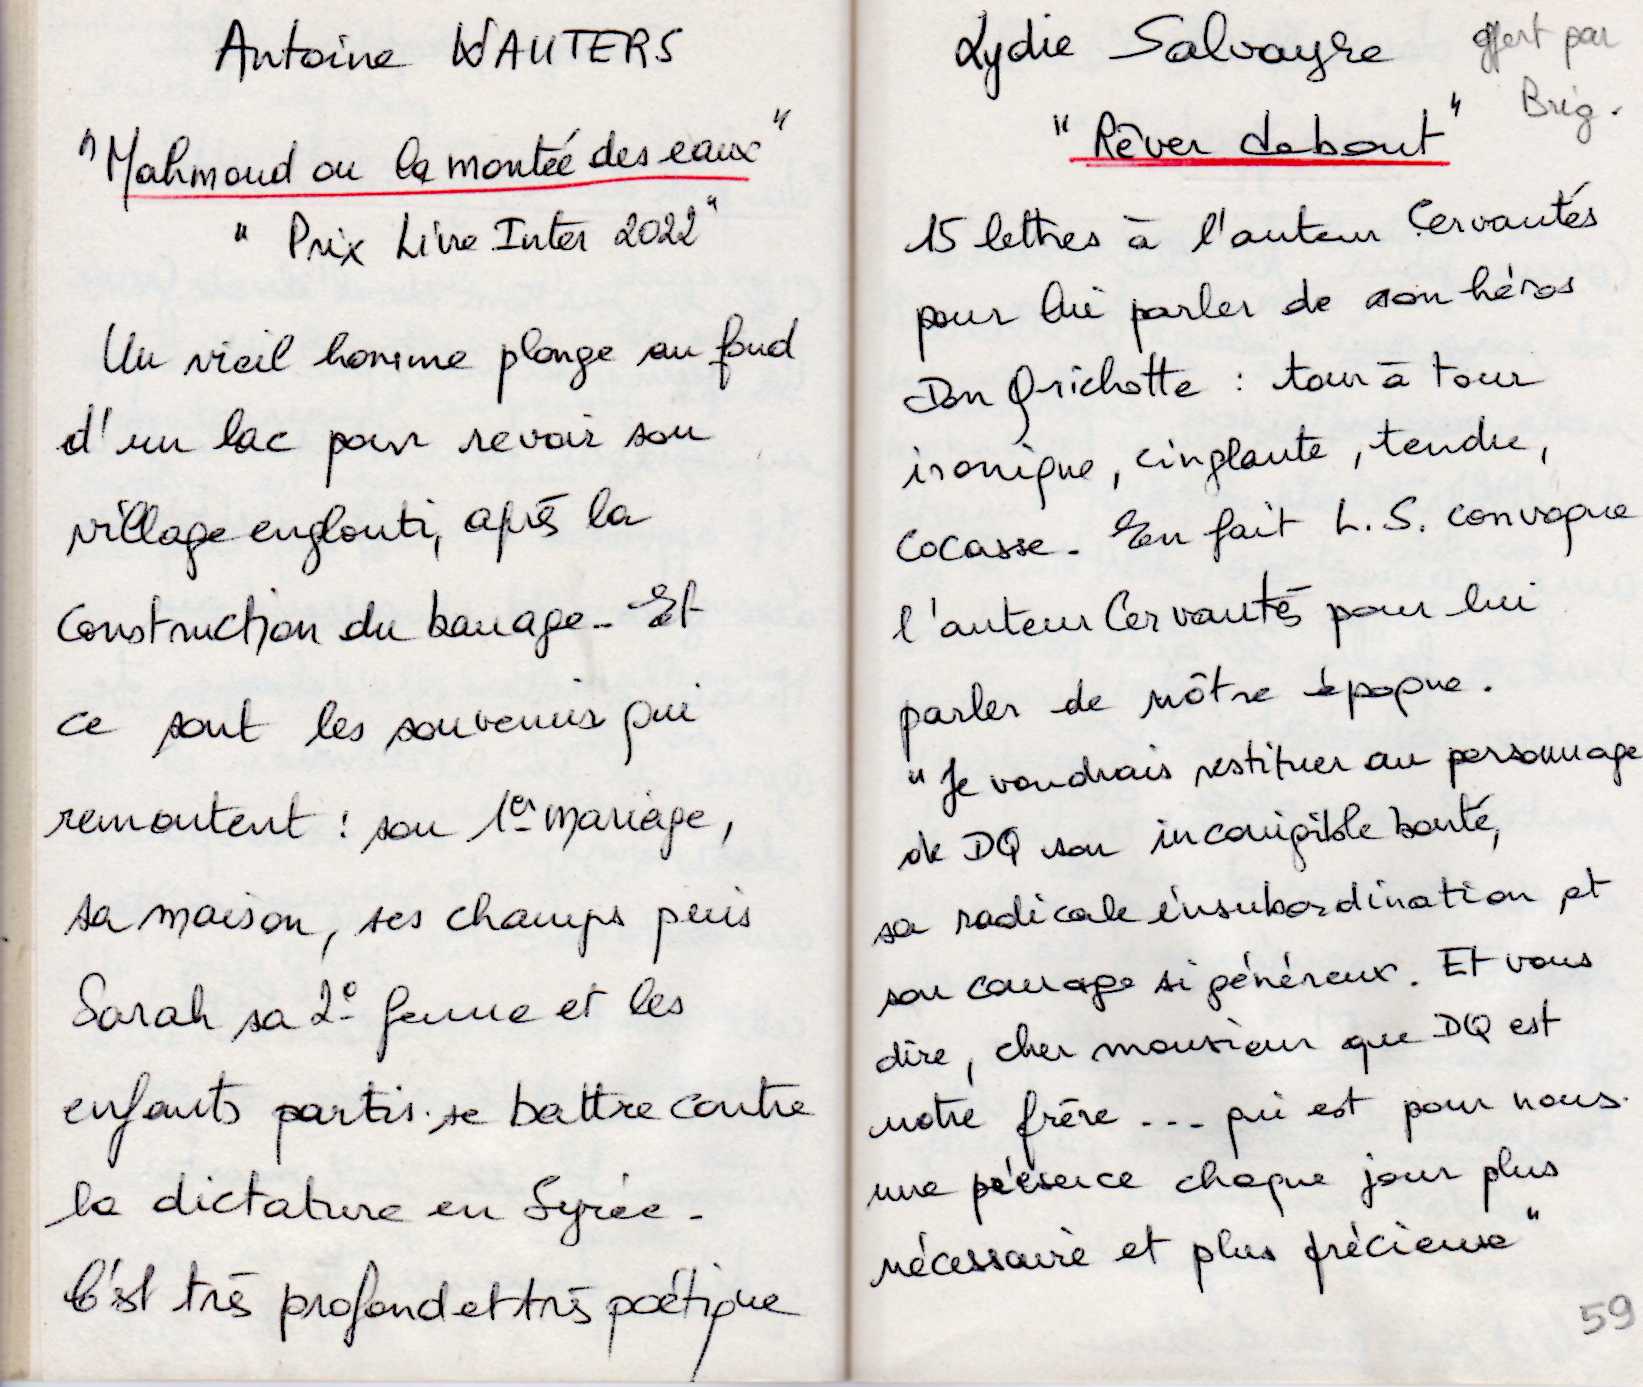 Antoine WAUTERS
"Mahmoud ou la montée des eaux"
"Prix Livre Inter 2022"
Un vieil homme plonge au fond
d'un lac pour revoir son
village englouti, après la
construction du barrage. Et
ce sont les souvenirs qui
remontent : son 1er mariage,
sa maison, ses champs puis
Sarah sa 2e femme et les
enfants partis se battre contre
la dictature en Syrie.
C'est très profond et très poétique
Lydie Salvayre
offert par
Brig.
"Rêver debout"
15 lettres à l'auteur Cervantés
pour lui parler de son héros
Don Quichotte : tour à tour
ironique, cinglante, tendre,
cocasse. En fait L.S. convoque
l'auteur Cervantés pour lui
parler de nôtre époque.
"Je voudrais restituer au personnage
de DQ son incorrigible bonté,
sa radicale insubordination et
son courage si généreux. Et vous
dire, cher monsieur que DQ est
notre frère... qui est pour nous
une présence chaque jour plus
nécessaire et plus précieuse"
59